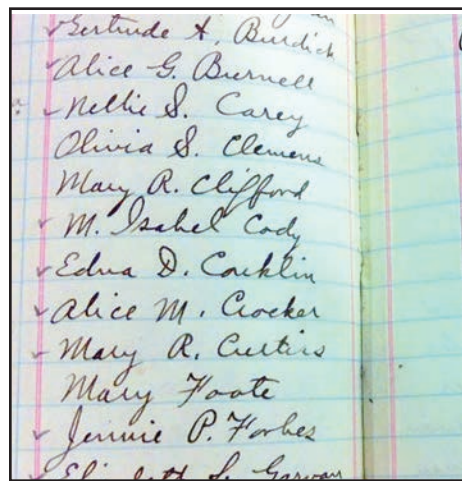 Gertrude A. Burdick
Alice G. Burnell
Nellie S. Carey
Olivia S. Clemens
Mary R. Clifford
M. Isabel Cody
Edna D. Conklin
Alice M. Crocker
Mary R. Curtiss
Mary Foote
Jennie P. Forbes